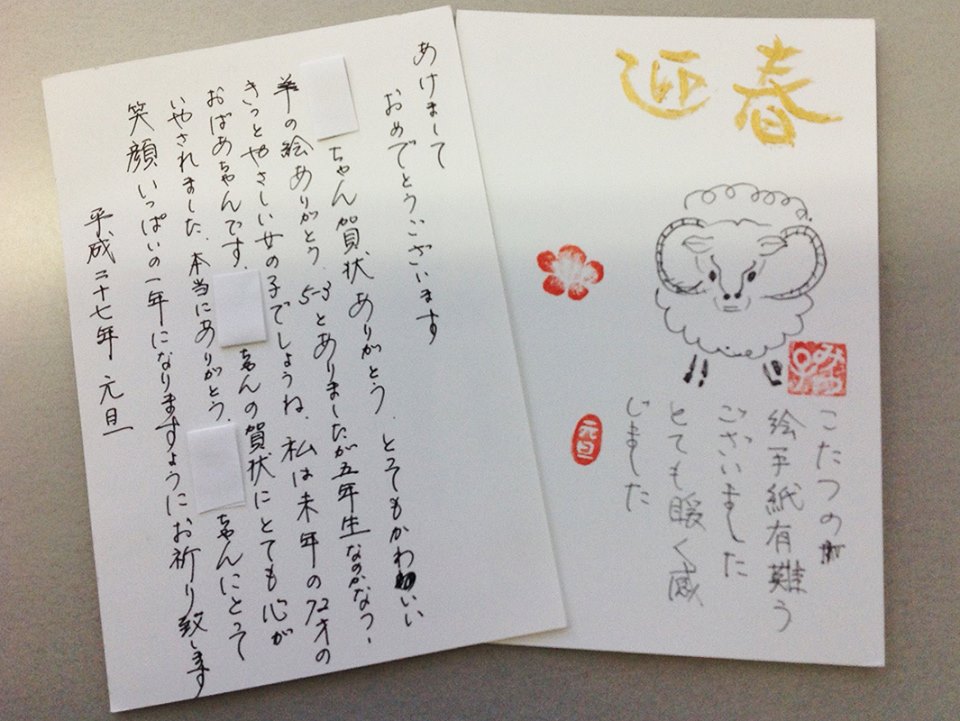 あけまして
おめでとうございます
ちゃん賀状ありがとう、とてもかわいい
羊の絵ありがとう、5-3とありましたが五年生なのかなっ・
きっとやさしい女の子でしょうね、私は未年の72才の
おばあちゃんです、ちゃんの賀状にとても心が
いやされました、本当にありがとう、ちゃんにとって
笑顔いっぱいの一年になりますようにお祈り致します
平成二十七年 元旦
迎春
こたつの
絵手紙有難う
ございました
とても暖く感
じました
元旦